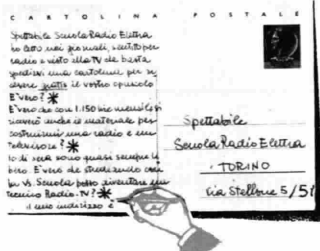 CARTOLINA POSTALE
Spettabile Scuola Radio Elettra
ho letto sui giornali, sentito per
radio e visto alla TV che basta
spedirvi una cartolina per ri
cevere gratis il vostro opuscolo
E' vero? *
E' vero che con 1.150 lire mensili si
riceverà anche il materiale per
costruirmi una radio e un
televisore? *
Io di sera sono quasi sempre li
bero. E' vero che studiando con
la Vs. Scuola posso diventare un
tecnico Radio-TV? *
il mio indirizzo è
Spettabile
Scuola Radio Elettra
TORINO
via Stellone 5/5